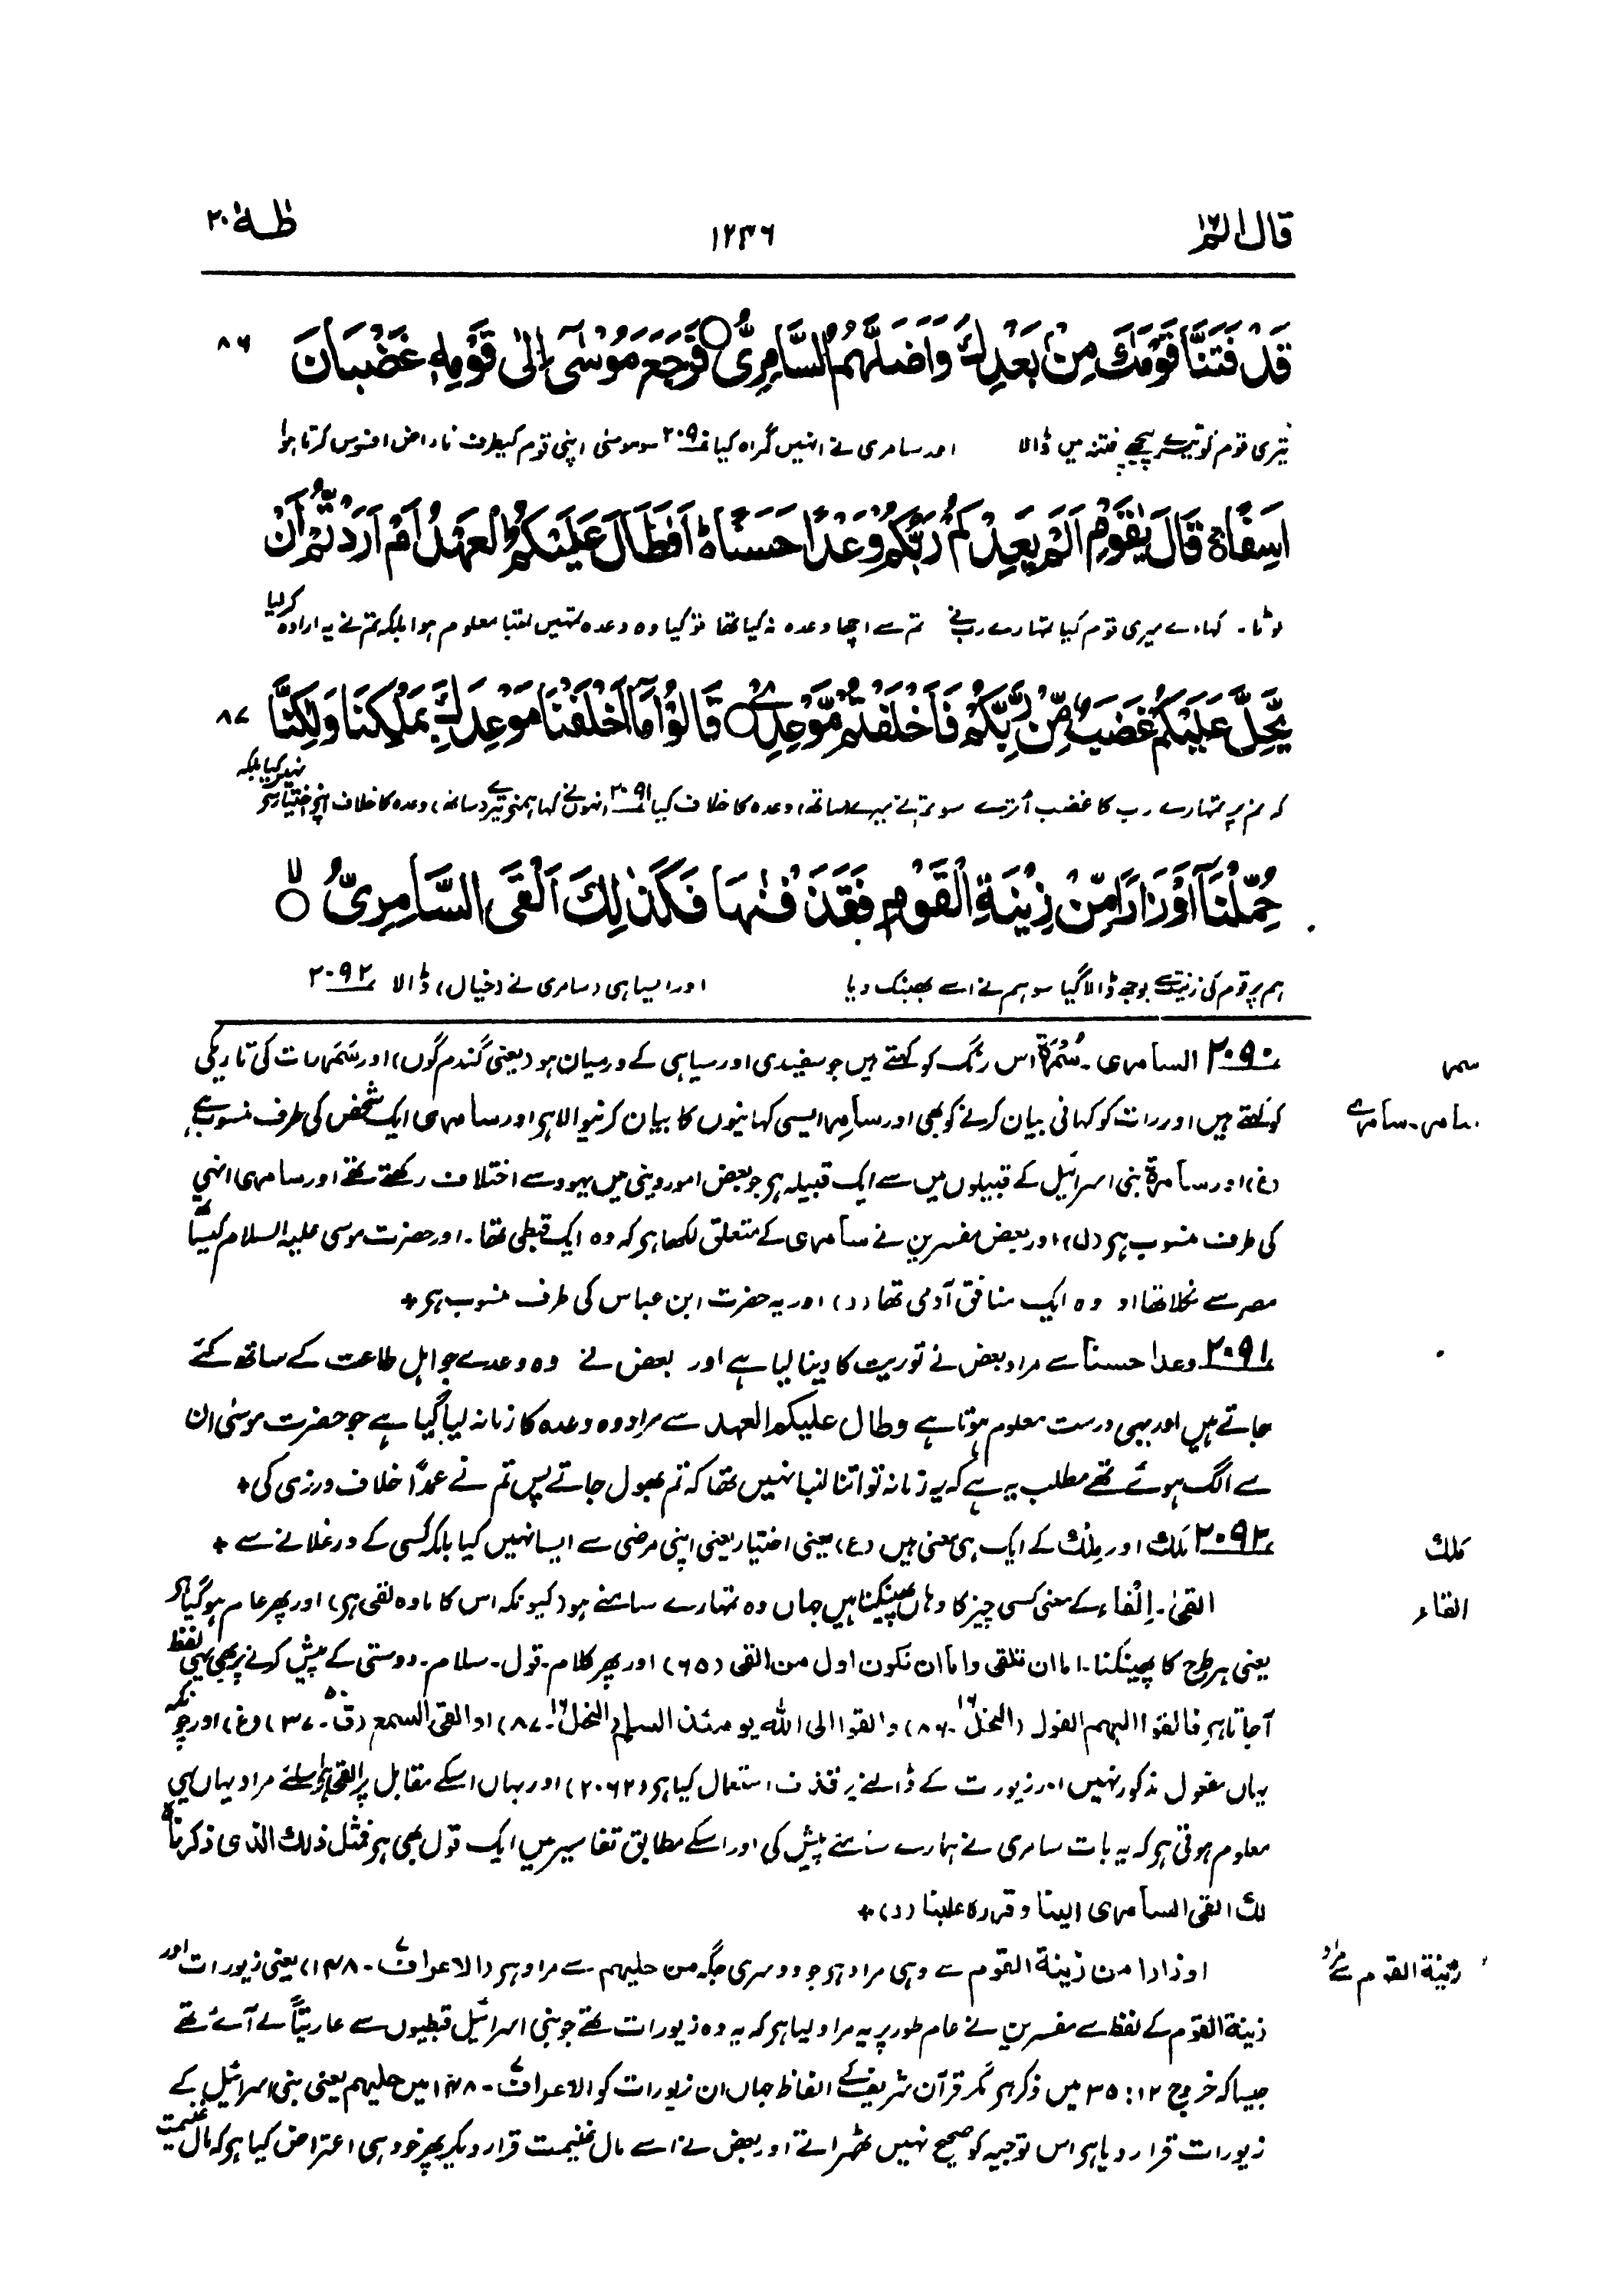 قال الم ١٦
١٢٣٦
طٰهٰ ٢٠
قَدْ فَتَنَّا قَوْمَكَ مِنْۢ بَعْدِكَ وَاَضَلَّهُمُ السَّامِرِىُّ ○ فَرَجَعَ مُوْسٰٓى اِلٰى قَوْمِهٖ غَضْبَانَ
٨٦
تیری قوم کو تیرے پیچھے فتنہ میں ڈالا اور سامری نے انہیں گمراہ کیا ٢٠٩٠ سو موسٰی اپنی قوم کیطرف ناراض افسوس کرتا ہوا
اَسِفًا ۚ قَالَ يٰقَوْمِ اَلَمْ يَعِدْكُمْ رَبُّكُمْ وَعْدًا حَسَنًا ۭ اَفَطَالَ عَلَيْكُمُ الْعَهْدُ اَمْ اَرَدْتُّمْ اَنْ
لوٹا۔ کہا اے میری قوم کیا تمہارے رب نے تم سے اچھا وعدہ نہ کیا تھا تو کیا وہ وعدہ تمہیں لمبا معلوم ہوا بلکہ تم نے یہ ارادہ کرلیا
يَّحِلَّ عَلَيْكُمْ غَضَبٌ مِّنْ رَّبِّكُمْ فَاَخْلَفْتُمْ مَّوْعِدِىْ ○ قَالُوْا مَآ اَخْلَفْنَا مَوْعِدَكَ بِمَلْكِنَا وَلٰكِنَّا
٨٧
کہ تم پر تمہارے رب کا غضب اُترے سو تم نے میرے (ساتھ) وعدہ کا خلاف کیا ٢٠٩١ انہوں نے کہا ہمنے تیرے (ساتھ) وعدہ کا خلاف اپنے اختیار سے نہیں کیا بلکہ
حُمِّلْنَآ اَوْزَارًا مِّنْ زِيْنَةِ الْقَوْمِ فَقَذَفْنٰهَا فَكَذٰلِكَ اَلْقَى السَّامِرِىُّ ○ لا
ہم پر قوم کی زینت کے بوجھ ڈالا گیا سو ہم نے اسے پھینک دیا اور ایسا ہی سامری نے (خیال) ڈالا ٢٠٩٢
سمر
٢٠٩٠ السامری۔ سُمْرَة اس رنگ کو کہتے ہیں جو سفیدی اور سیاہی کے درمیان ہو (یعنی گندم گوں) اور سَمَر رات کی تاریکی
سامر۔ سامری
کو کہتے ہیں اور رات کو کہانی بیان کرنے کو بھی اور سامِر ایسی کہانیوں کا بیان کرنیوالا ہر اور سامری ایک شخص کی طرف منسوب ہے
(غ) اور سامرة بنی اسرائیل کے قبیلوں میں سے ایک قبیلہ ہر جو بعض امور دینی میں یہود سے اختلاف رکھتے تھے اور سامری انہی
کی طرف منسوب ہر (ل) اور بعض مفسرین نے سامری کے متعلق لکھا ہر کہ وہ ایک قبطی تھا۔ اور حضرت موسی علیہ السلام کیساتھ
مصر سے نکلا تھا او وہ ایک منافق آدمی تھا (ر) اور یہ حضرت ابن عباس کی طرف منسوب ہر +
٢٠٩١ وعدا حسنا سے مراد بعض نے توریت کا دینا لیا ہے اور بعض نے وہ وعدے جو اہل طاعت کے ساتھ کئے
جاتے ہیں اور یہی درست معلوم ہوتا ہے وطال علیکم العہد سے مراد وہ وعدہ کا زمانہ لیا گیا ہے جو حضرت موسٰی ان
سے الگ ہوئے تھے مطلب یہ ہے کہ یہ زمانہ تو اتنا لنبا نہیں تھا کہ تم بھول جاتے پس تم نے عمداً خلاف ورزی کی +
ملك
٢٠٩٢ مَلْك اور مِلْك کے ایک ہی معنی ہیں (ع) یعنی اختیار یعنی اپنی مرضی سے ایسا نہیں کیا بلکہ کسی کے ورغلانے سے +
القاء
القیٰ۔ اِلْقَاء کے معنی کسی چیز کا وہاں پھینکنا ہیں جہاں وہ تمہارے سامنے ہو (کیونکہ اس کا مادہ لقی ہر) اور پھر عام ہو گیا ہر
یعنی ہر طرح کا پھینکنا۔ اما ان تلقی واما ان نکون اول من القی (٦٥) اور پھر کلام۔ قول۔ سلام۔ دوستی کے پیش کرنے پر بھی یہی لفظ
آ جاتا ہر فالقوا الیہم القول (النحل ١٦۔ ٨٦) والقوا الی اللہ یومئذ السلم (النحل ١٦۔ ٨٧) او القی السمع (ق ٥٠۔ ٣٧) (غ) اور چونکہ
یہاں مفعول مذکور نہیں اور زیورت کے ڈالنے پر قذف استعمال کیا ہر (٢٠٦٢) اور یہاں اسکے مقابل پر القی ہر اسلئے مراد یہاں یہی
معلوم ہوتی ہر کہ یہ بات سامری نے ہمارے سامنے پیش کی اور اسکے مطابق تفاسیر میں ایک قول بھی ہر فمثل ذلك الذی ذکرناہ
لك القی السامری الینا وقررہ علینا (ر) +
زینة القوم سے مراد
اوزارا من زینة القوم سے وہی مراد ہر جو دوسری جگہ من حلیہم سے مراد ہر (الاعراف ٧۔ ١٤٨) یعنی زیورات اور
زینة القوم کے لفظ سے مفسرین نے عام طور پر یہ مراد لیا ہر کہ یہ وہ زیورات تھے جو بنی اسرائیل قبطیوں سے عاریتاً لے آئے تھے
جیسا کہ خروج ١٢: ٣٥ میں ذکر ہر مگر قرآن شریف کے الفاظ جہاں ان زیورات کو الاعراف ٧۔ ١٤٨ میں حلیہم یعنی بنی اسرائیل کے
زیورات قرار دیا ہر اس توجیہ کو صحیح نہیں ٹھہراتے اور بعض نے اسے مال غنیمت قرار دیکر پھر خود ہی اعتراض کیا ہر کہ مال غنیمت